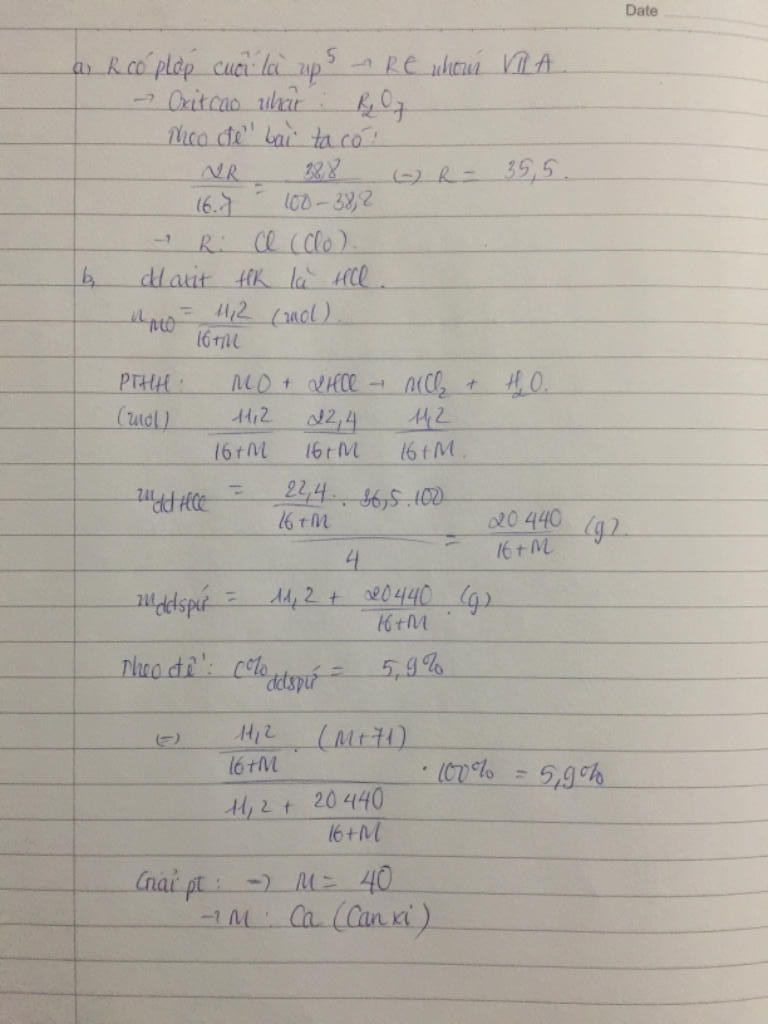 Date
a, R có plớp cuối là np⁵ → R ∈ nhóm VII A.
→ Oxit cao nhất : R₂O₇
Theo đề bài ta có :
2R / 16.7 = 38,8 / 100 - 38,8 (=) R = 35,5.
→ R : Cl (Clo).
b, dd axit HR là HCl.
n MO = 11,2 / 16+M (mol).
PTHH : MO + 2HCl → MCl₂ + H₂O.
(mol) 11,2 / 16+M 22,4 / 16+M 11,2 / 16+M.
m dd HCl = 22,4 / 16+M . 36,5 . 100 / 4 = 20 440 / 16+M (g).
m ddspứ = 11,2 + 20440 / 16+M . (g)
Theo đề : C% ddspứ = 5,9%
(=) 11,2 / 16+M . (M+71) / 11,2 + 20 440 / 16+M . 100% = 5,9%
Giải pt : → M = 40
→ M : Ca (Canxi)